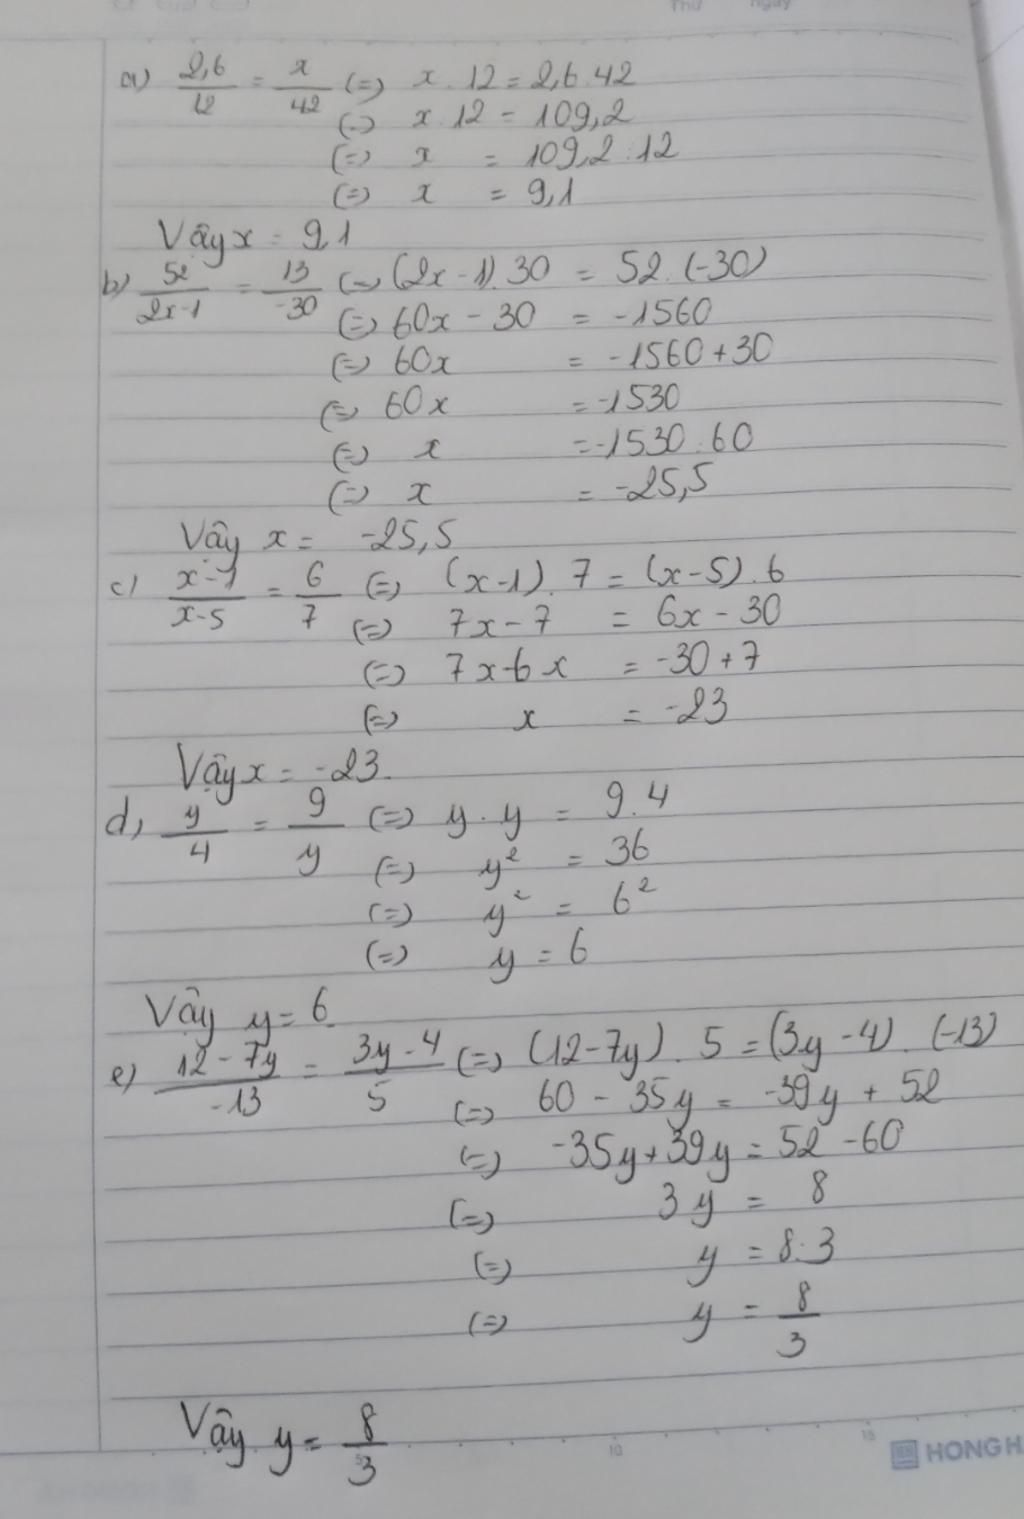 Thứ ngày
a) 2,6/12 = x/42 (=) x . 12 = 2,6 . 42
(=) x . 12 = 109,2
(=) x = 109,2 : 12
(=) x = 9,1
Vậy x = 9,1
b) 52/2x-1 = 13/-30 (=) (2x-1).30 = 52.(-30)
(=) 60x - 30 = -1560
(=) 60x = -1560+30
(=) 60x = -1530
(=) x = -1530:60
(=) x = -25,5
Vậy x = -25,5
c) x-1/x-5 = 6/7 (=) (x-1).7 = (x-5).6
(=) 7x-7 = 6x-30
(=) 7x-6x = -30+7
(=) x = -23
Vậy x = -23.
d) y/4 = 9/y (=) y.y = 9.4
(=) y² = 36
(=) y² = 6²
(=) y = 6
Vậy y = 6
e) 12-7y/-13 = 3y-4/5 (=) (12-7y).5 = (3y-4).(-13)
(=) 60 - 35y = -39y + 52
(=) -35y+39y = 52-60
(=) 3y = 8
(=) y = 8:3
(=) y = 8/3
Vậy y = 8/3
5 10 15
HONG H